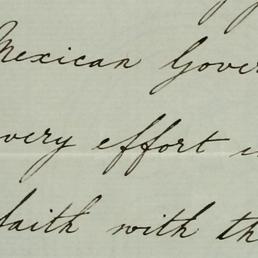 Mexican Gover
very effort
faith with th